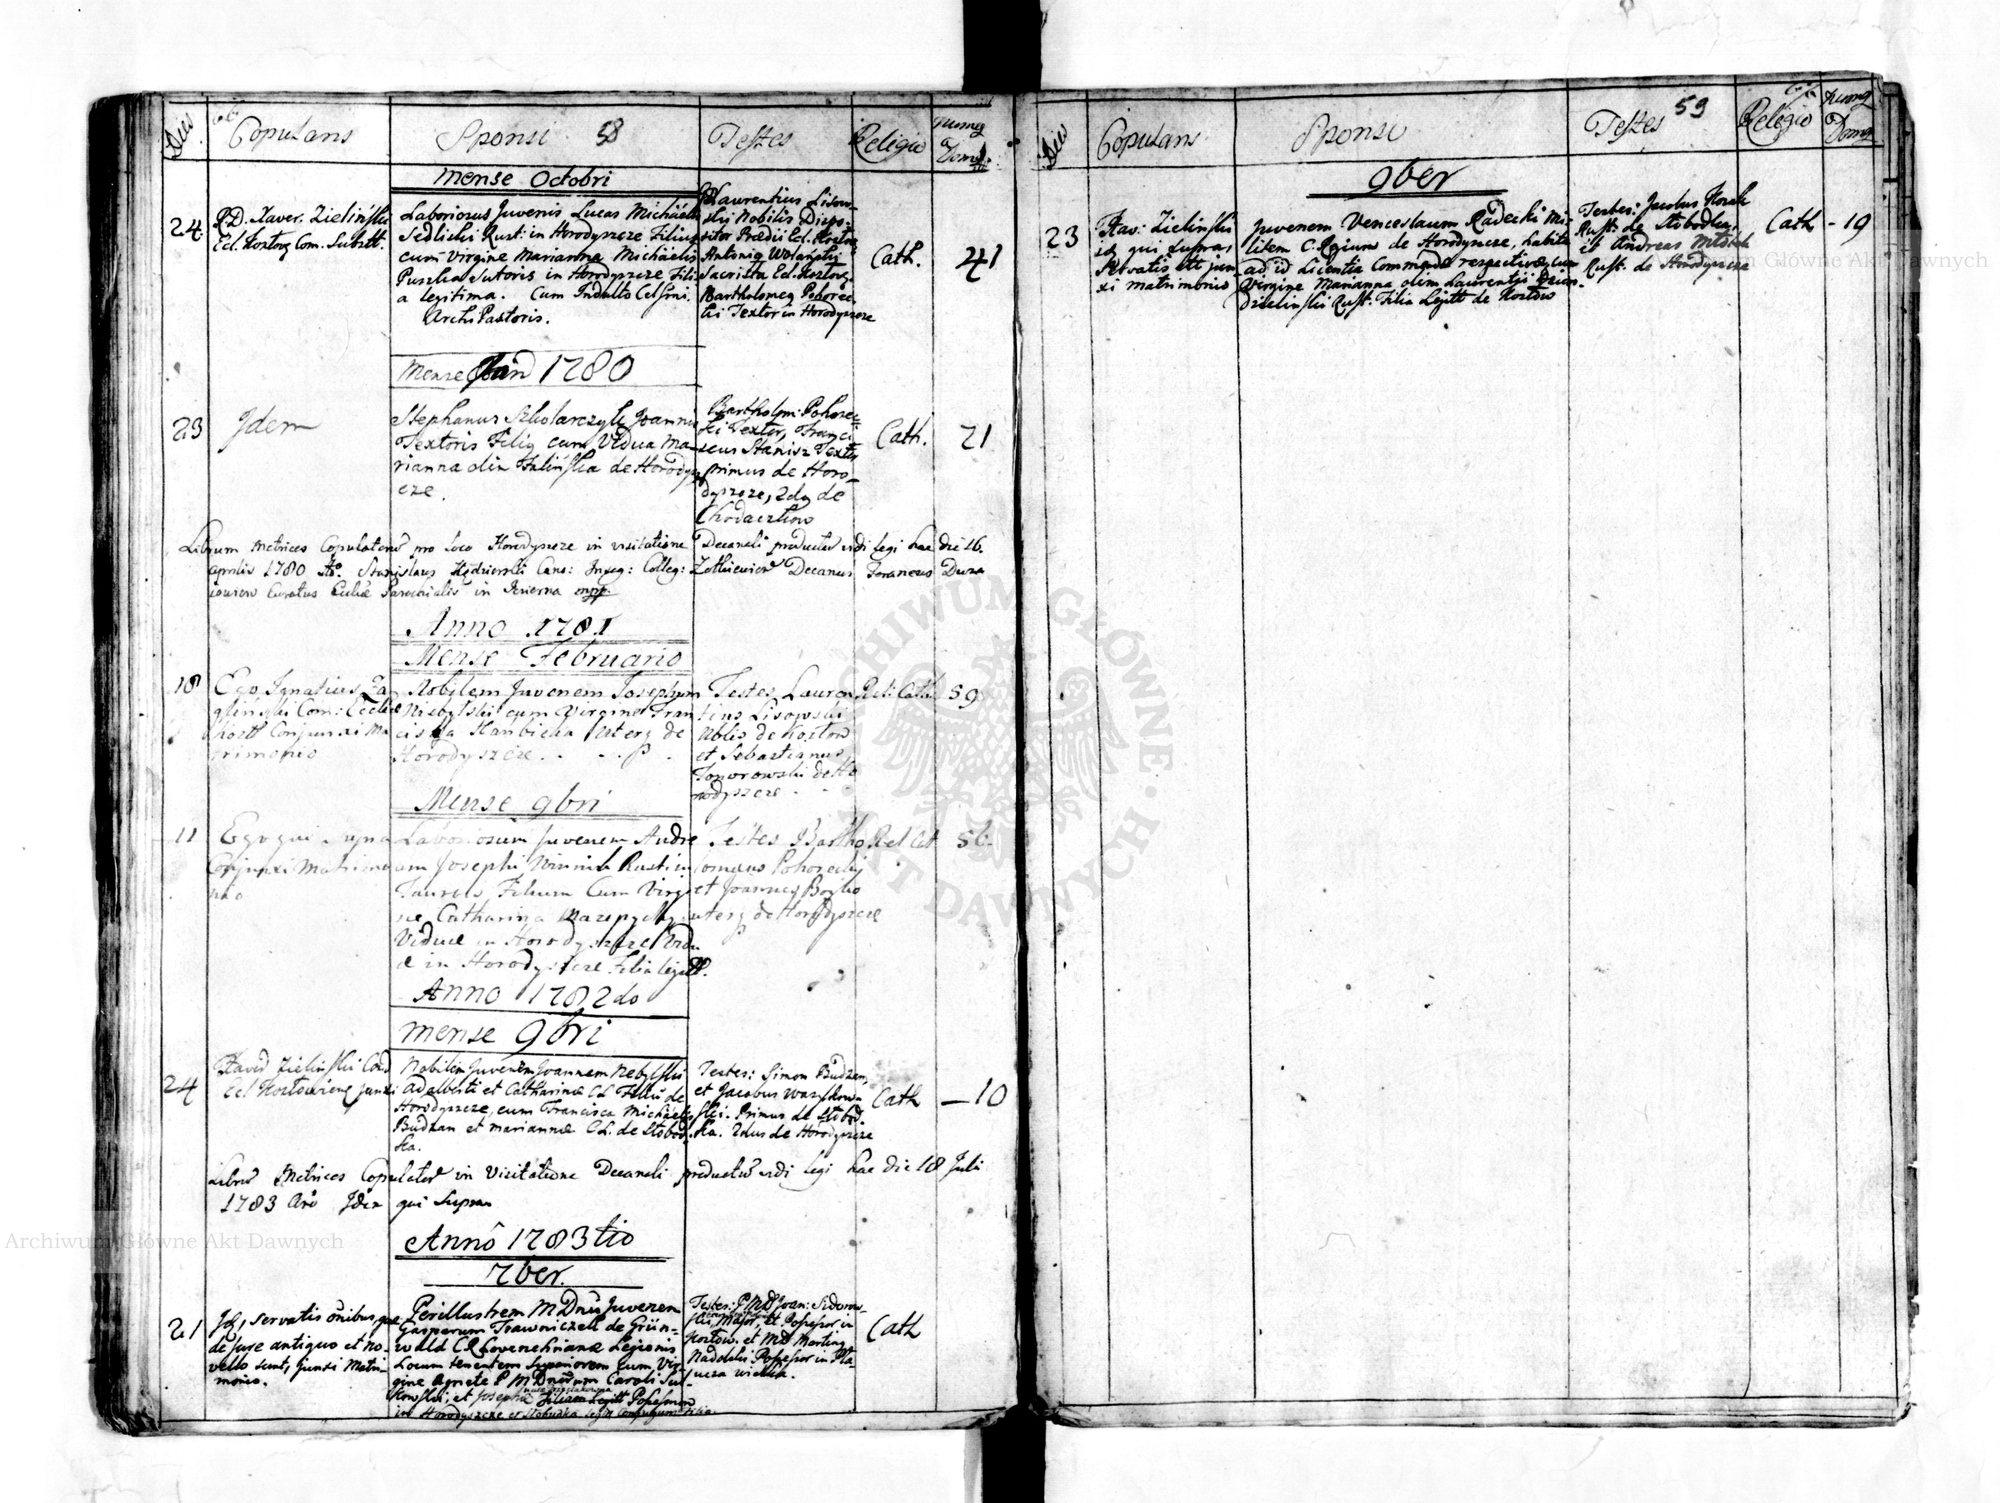 Dies
Copulans
Sponsi 58
Testes
Religio
Numeg Domg
Mense Octobri
24
P.D. Xaver. Zieliński
Ecl. Koztog Com. Substt.
Laboriosus Juvenis Lucas Michäelis
Sedlicki Rust: in Horodyszcze Filius
cum Virgine Marianna Michäelis
Puszka Sutoris in Horodyszcze Fili
a legitima. Cum Indulto Celssmi.
ArchiPastoris.
Laurentius Lisow-
ski Nobilis Dispo-
sitor Prædii Ecl. Koztog
Antonig Wolanski
Sacrista Ecl. Koztog
Bartholomeg Pohorec-
ki Textor in Horodyszcze
Cath.
41
Mense 1780
23
Idem
Stephanus Szkolarczyk Joannis
Textoris Filig cum Vidua Ma-
rianna olim de Horodys
cze.
Bartholm: Pohorec-
ki Textor, Franci
scus Stanisz Textor
Primus de Horo-
dyszcze, 2dg de
Cath.
21
Librum Metrices Copulatorũ pro loco Horodyszcze in visitatione Decanali productũ vidi legi hac die 16.
Aprilis 1780 Stanislaus Kędzierski Cano: Colleg: Decanus Foraneus
Curatus Eccliæ Parochialis in mpp.
Anno 1781
Mense Februario
18
Ego Ignatius Za
glinski Com: Eccliæ
Kost Conjunxi Ma
trimonio
Nobilem Juvenem Josephum
Niebylski cum Virgine Fran
cisca Hanbicka uterg de
Horodyszcze . . . .
Testes Lauren
tius Lisowski
Nblis de Kostow
et Sebastianus
Toporowski de Ho
rodyszcze - -
Rel: Cath
59
Mense 9bri
11
Ego qui supra
Conjunxi Matrimo
nio
Laboriosum Juvenem Andre
am Josephi Winnik Rustici
Filium Cum Virgi
ne Catharina
Viduæ in Horodyszcze Vidu
æ in Horodyszcze Filia legitt.
Testes Bartho
lomæus Pohorecky
et Joannes
uterg de Horodyszcze
Rel Cat
56
Anno 1782do
mense 9bri
24
Xaver Zieliński Com
Ecl Koztowieng junxi
Nobilem Juvenem Joannem Nebylski
Adalberti et Catharinæ CL Filiũ de
Horodyszcze, cum Francisca Michäelis
Budzan et mariannæ CL. de Stobod-
ka.
Testes: Simon Budzan,
et Jacobus Waszkow-
ski. Primus de Stobod-
ka. 2dus de Horodyszcze
Cath
- 10
Librũ Metrices Copulatorũ in Visitatione Decanali productũ vidi legi hac die 18 Juli
1783 Idem qui Supra
Annô 1783tio
7ber.
21
Id, servatis õnibus, quæ
de Jure antiquo et no-
vello sunt, junxi Matri-
monio.
Perillustrem MDnũ Juvenem
Gasparum Trawniczek de Grün-
wald
Locum tenentem Superiorem Cum Vir-
gine Agnete P M Dnorum Caroli Sul-
kowski, et Josephæ Filiam Legitt Possessorum
in Horodyszcze et Stobudka
Testes: P.MD Joan: Siderow-
ski Major, et Possessor in
Koztow. et MD Marting
Naddski Possessor in Pla-
ucza wielka.
Cath
Dies
Copulans
Sponsi
Testes 59
Religio
Numeg Domg
9ber
23
Xav: Zieliński
id qui supra,
servatis stt jun-
xi matrimonio
Juvenem Venceslaum Radecki Mi-
litem C. Regium de Horodyszcze, habita
ad id Licentia Commendæ respectivæ, cum
Virgine Marianna olim Laurentii Dzien-
dzielinski Rust: Filia Legitt de Koztow
Testes: Jacobus Horak
Rust: de Stobodka,
et Andreas
Rust. de Horodyszcze
Cath
- 19
ARCHIWUM GŁÓWNE AKT DAWNYCH
Archiwum Główne Akt Dawnych
Archiwum Główne Akt Dawnych